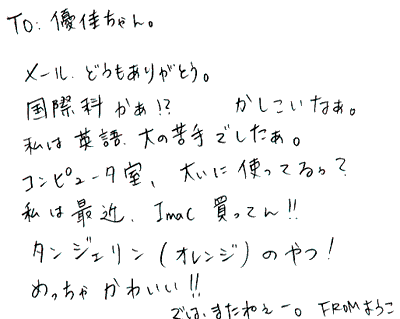 To: 優佳ちゃん。
メール、どうもありがとう。
国際科かぁ!? かしこいなぁ。
私は英語、大の苦手でしたぁ。
コンピュータ室、大いに使ってるぅ?
私は最近、Imac 買ってん!!
タンジェリン(オレンジ)のやつ!
めっちゃ かわいい!!
では、またねぇー。 FROMようこ